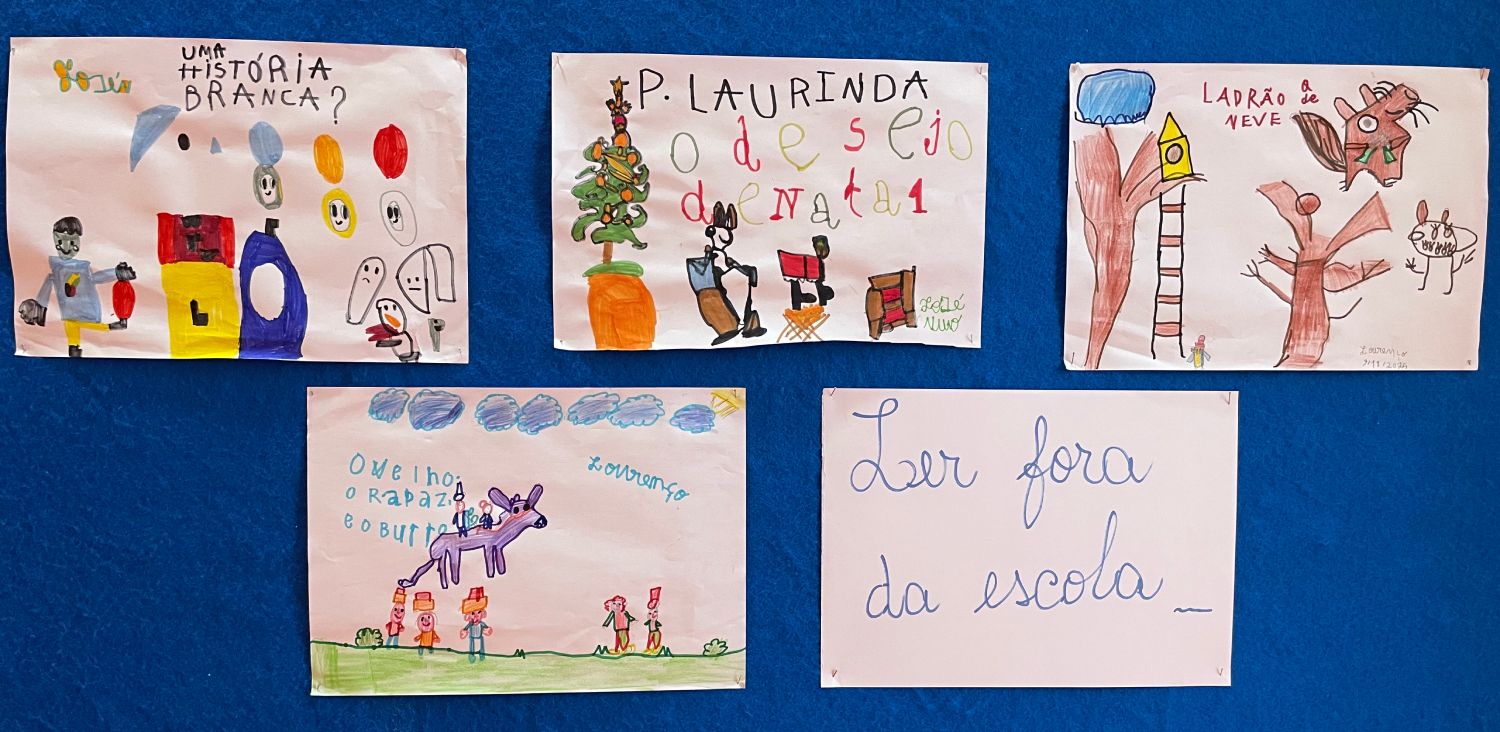 José
UMA
HISTÓRIA
BRANCA?
P. LAURINDA
o desejo
de Natal
José
Nuno
LADRÃO
a
de
NEVE
Lourenço
9/11/2025
O Velho,
o Rapaz,
e o Burro
Lourenço
Ler fora
da escola_